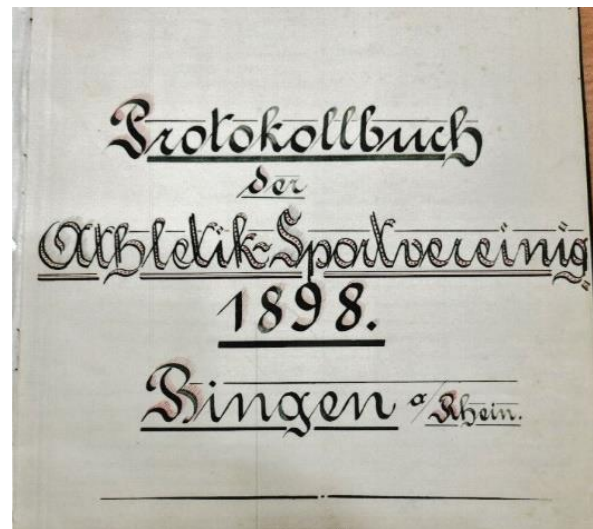 Protokollbuch
der
Athletik-Sportvereinig
1898.
Bingen a/Rhein.